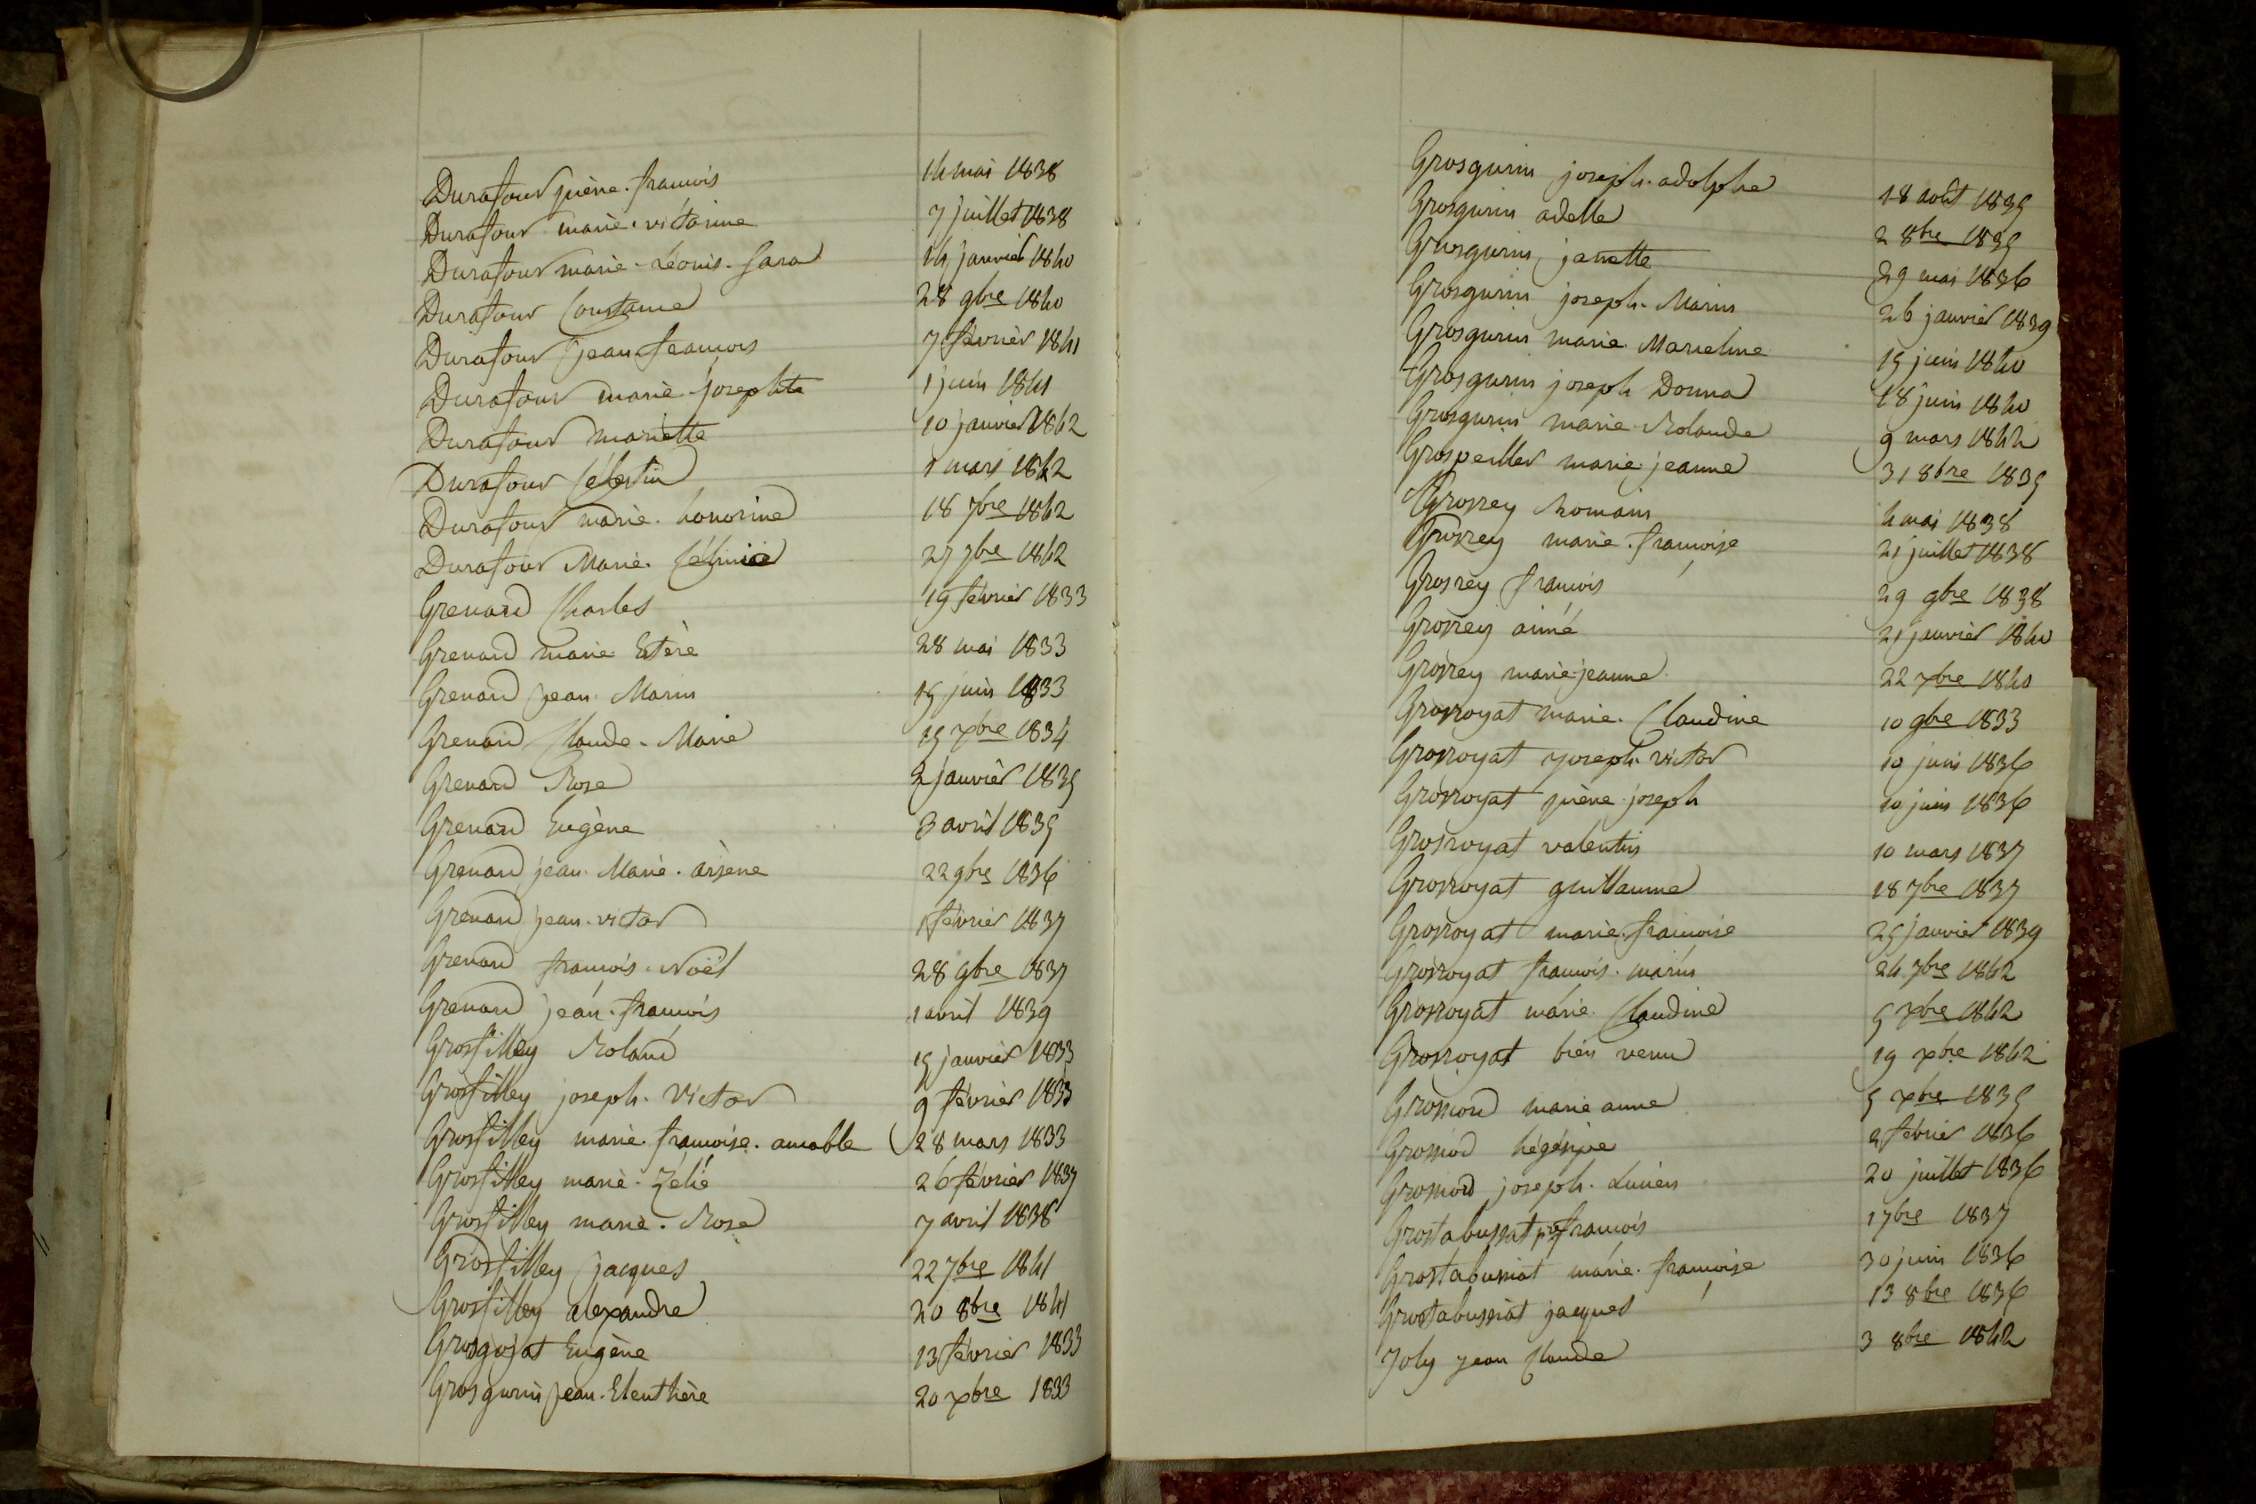 Durafour pierre. françois 14 mai 1838
Durafour marie. victorine 7 juillet 1838
Durafour marie. Léonis. Sara 14 janvier 1840
Durafour Constance 28 9bre 1840
Durafour jean françois 7 février 1841
Durafour marie. josephte 1 juin 1841
Durafour mariette 10 janvier 1842
Durafour Célestin 1 mars 1842
Durafour marie. honorine 18 7bre 1842
Durafour Marie. 27 7bre 1842
Grenard Charles 19 février 1833
Grenard marie Estère 28 mai 1833
Grenard jean. Marin 15 juin 1833
Grenard Claude. Marie 15 xbre 1834
Grenard Rose 2 janvier 1835
Grenard Eugène 3 avril 1835
Grenard jean. Marie. arsène 22 9bre 1836
Grenard jean. victor 1 février 1837
Grenard françois. Noël 28 9bre 1837
Grenard jean. françois 1 avril 1839
Grosfilley Roland 15 janvier 1833
Grosfilley joseph. Victor 9 février 1833
Grosfilley marie. françoise. amable 28 mars 1833
Grosfilley marie. Zélie 26 février 1837
Grosfilley marie. Rose 7 avril 1838
Grosfilley jacques 22 7bre 1841
Grosfilley alexandre 20 8bre 1841
Grosgojat Eugène 13 février 1833
Grosgurin jean. Eleuthère 20 xbre 1833
Grosgurin joseph. adolphe 18 août 1835
Grosgurin adelle 2 8bre 1835
Grosgurin janette 29 mai 1836
Grosgurin joseph. Marin 26 janvier 1839
Grosgurin marie. Marceline 15 juin 1840
Grosgurin joseph Donna 18 juin 1840
Grosgurin marie. Rolande 9 mars 1842
Grospeiller marie jeanne 31 8bre 1835
Grosrey Romain 4 mai 1838
Grosrey marie. françoise 21 juillet 1838
Grosrey françois 29 9bre 1838
Grosrey aimé 21 janvier 1840
Grosrey marie jeanne 22 7bre 1840
Grosroyat marie. Claudine 10 9bre 1833
Grosroyat joseph. victor 10 juin 1836
Grosroyat pierre joseph 10 juin 1836
Grosroyat valentin 10 mars 1837
Grosroyat guillaume 18 7bre 1837
Grosroyat marie. françoise 25 janvier 1839
Grosroyat françois. marin 24 7bre 1842
Grosroyat marie. Claudine 5 xbre 1842
Grosroyat bien venu 19 xbre 1842
Gromord marie anne 5 xbre 1835
Gromord hégésipe 2 février 1836
Gromord joseph. Lucien 20 juillet 1836
Grostabussiat françois 1 7bre 1837
Grostabussiat marie. françoise 30 juin 1836
Grostabussiat jacques 13 8bre 1836
Joly jean Claude 3 8bre 1842